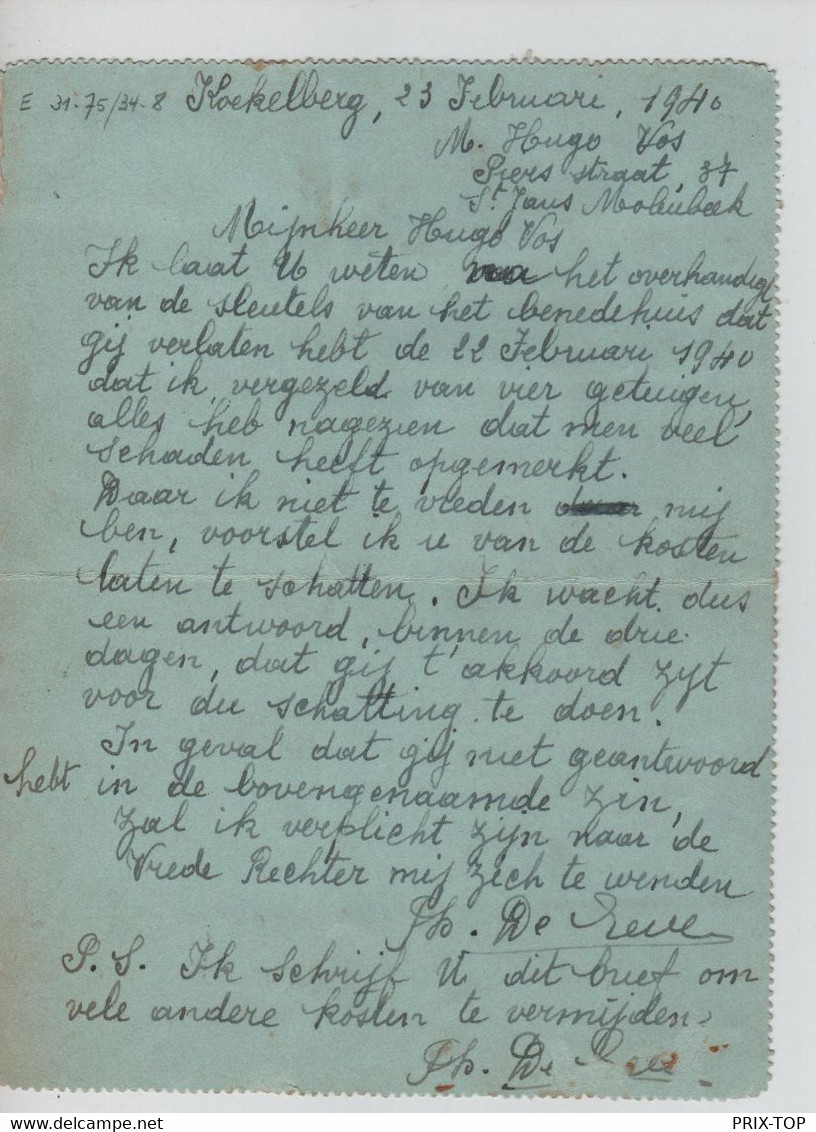 E 31-75/34-8 Koekelberg, 23 Februari, 1940
M. Hugo Vos
Piers straat, 37
St Jans Molenbeek
Mijnheer Hugo Vos
Ik laat U weten het overhandigt
van de sleutels van het benedehuis dat
gij verlaten hebt de 22 Februari 1940
dat ik, vergezeld van vier getuigen,
alles heb nagezien dat men veel
schaden heeft opgemerkt.
Daar ik niet te vreden mij
ben, voorstel ik u van de kosten
laten te schatten. Ik wacht dus
een antwoord, binnen de drie
dagen, dat gij t'akkoord zyt
voor du schatting te doen.
In geval dat gij niet geantwoord
hebt in de bovengenaamde zin,
Zal ik verplicht zijn naar de
Vrede Rechter mij zech te wenden
Ph. De
P.S. Ik schrijf U dit brief om
vele andere kosten te vermijden.
Ph. De
PRIX-TOP